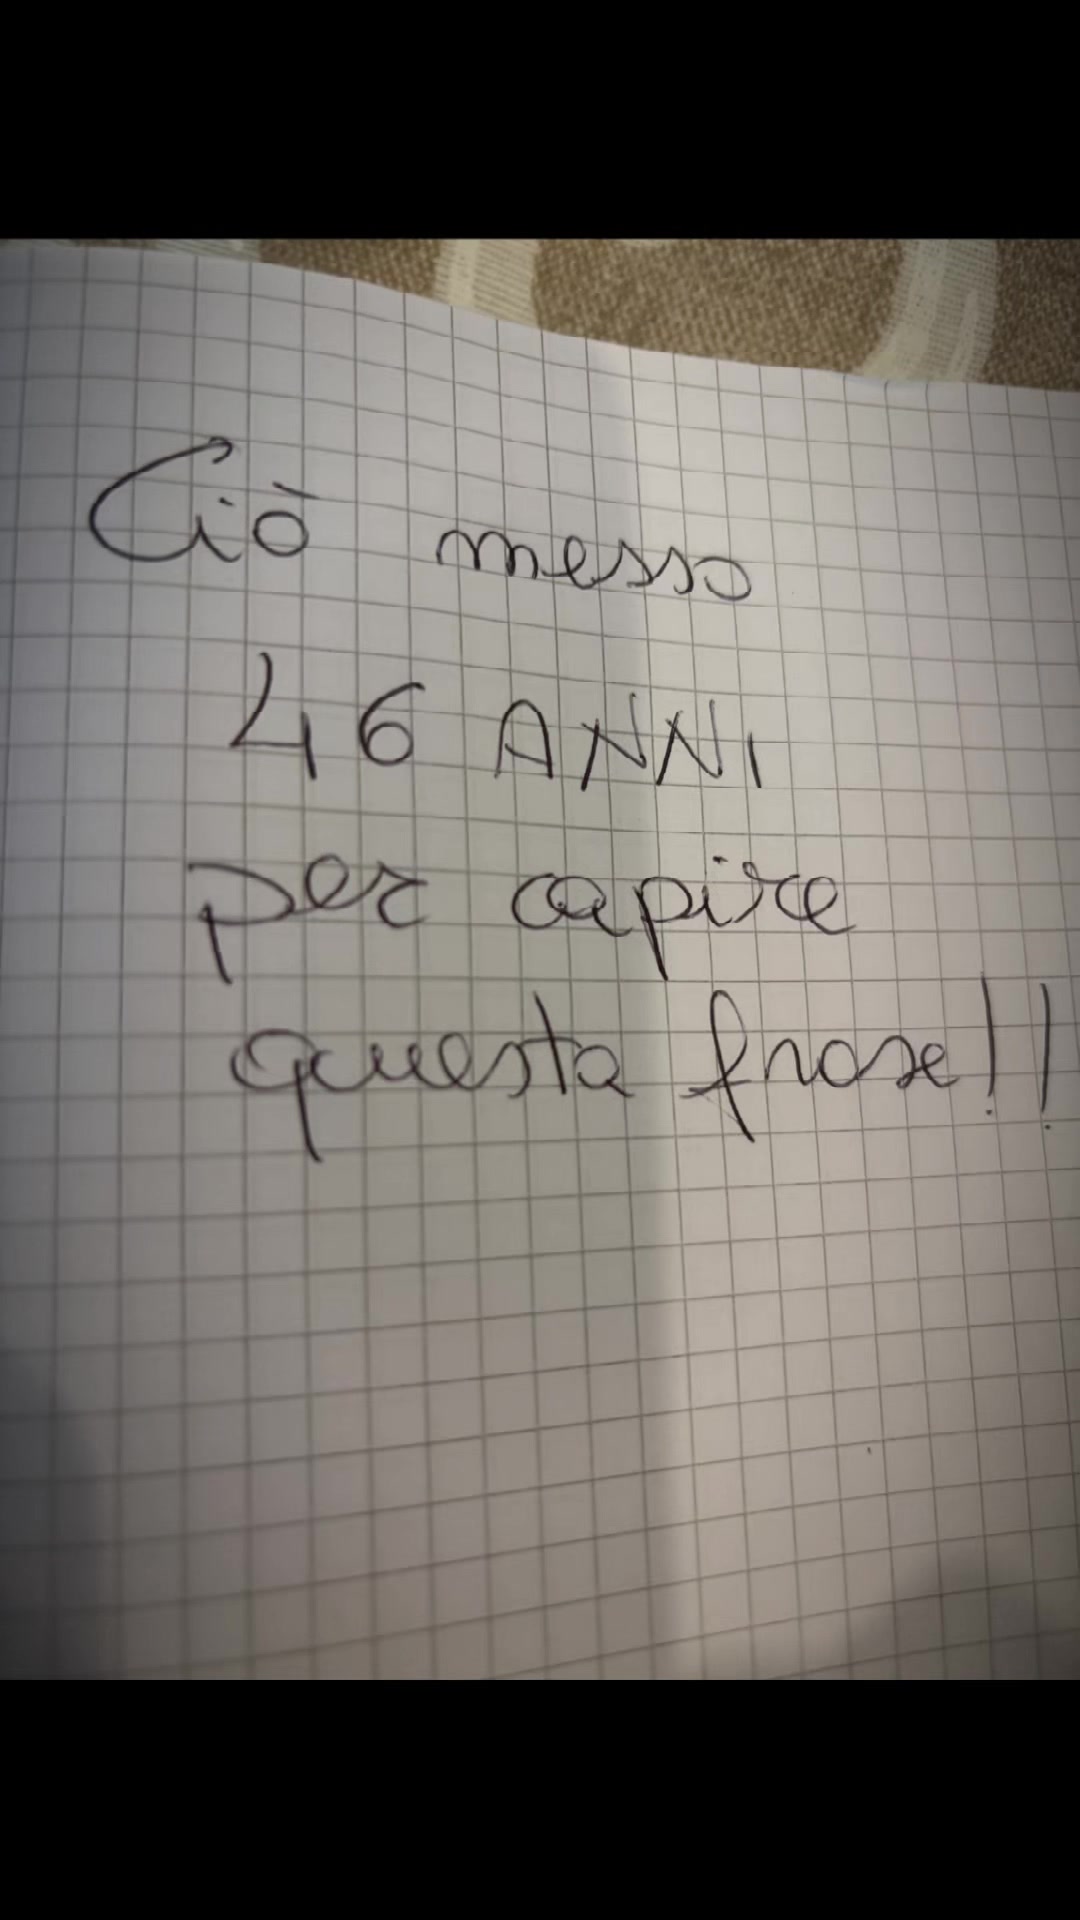 Ciò messo
46 ANNI
per capire
questa frase!!